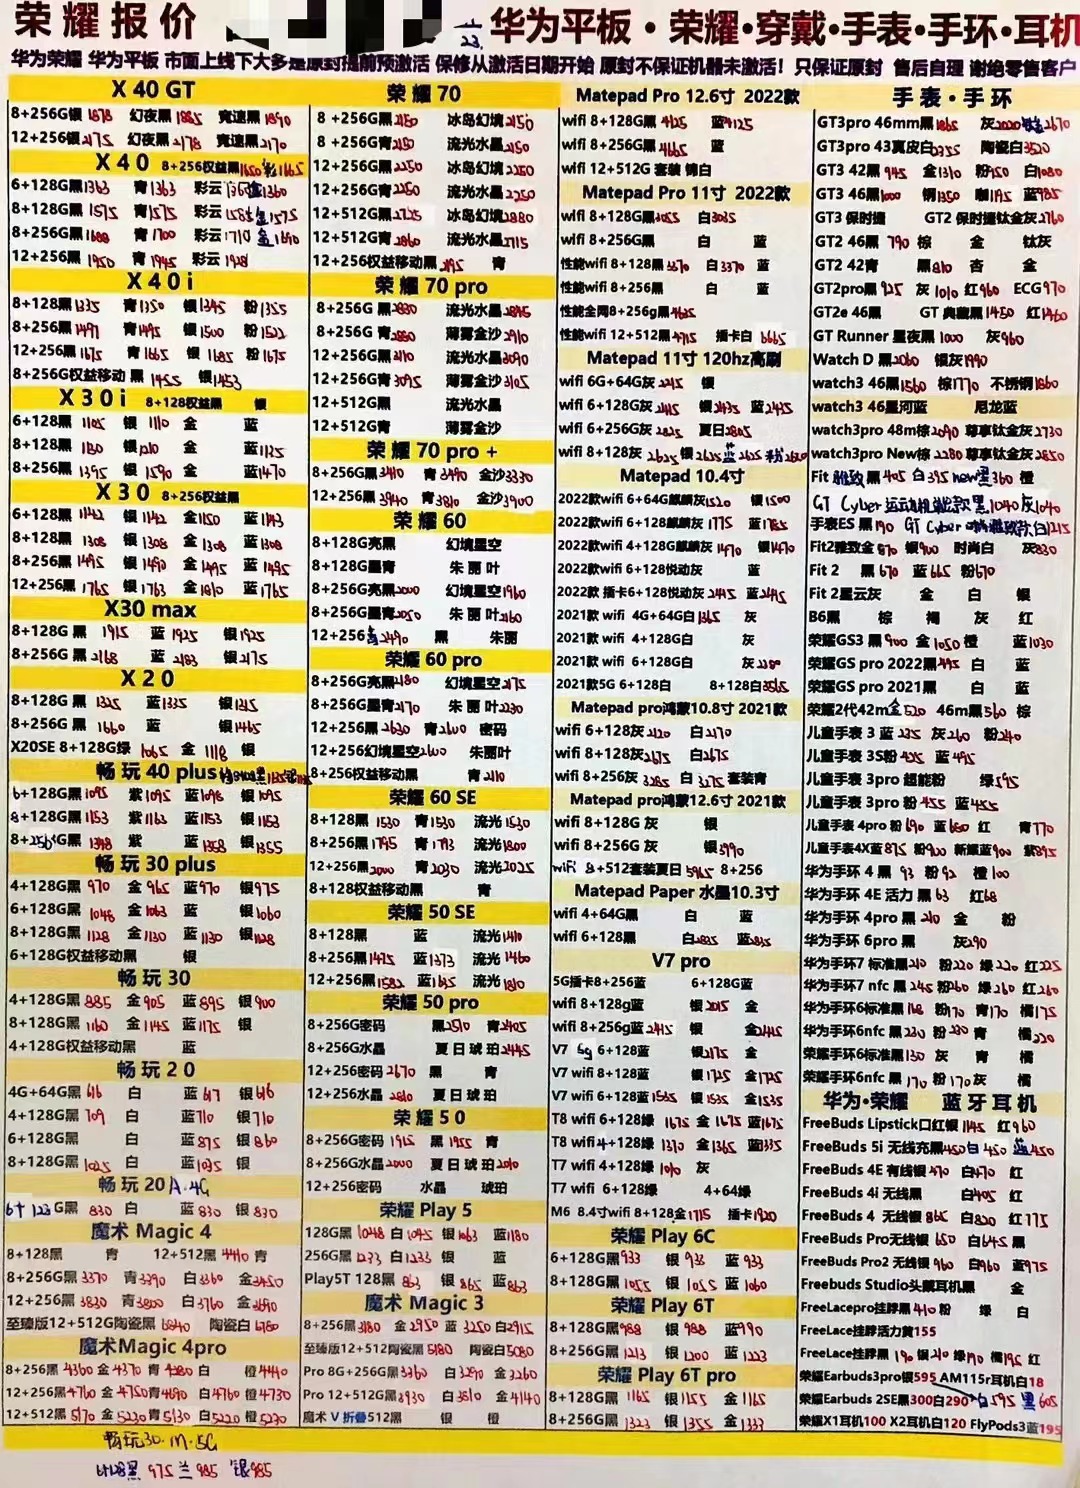 荣耀报价
23.
华为平板·荣耀·穿戴·手表·手环·耳机
华为荣耀 华为平板 市面上线下大多是原封提前预激活 保修从激活日期开始 原封不保证机器未激活！只保证原封 售后自理 谢绝零售客户
X 40 GT
8+256G银1878 幻夜黑1885 竞速黑1890
12+256银2175 幻夜黑2178 竞速黑2170
X 40 8+256权益黑1650 彩1665
6+128G黑1363 青1363 彩云 1360
8+128G黑1575 青1575 彩云 1575
8+256G黑1688 青1700 彩云1710 金1690
12+256黑 1950 青1945 彩云 1928
X 40 i
8+128黑1335 青1350 银1345 粉1355
8+256黑1491 青1495 银1500 粉1522
12+256黑1675 青1665 银1685 粉1675
8+256G权益移动 黑 1455 银1453
X 30 i 8+128权益黑 银
6+128黑 1105 银 1110 金 蓝
8+128黑 1180 银1210 金 蓝1125
8+256黑 1395 银1590 金 蓝1470
X 30 8+256权益黑
6+128黑 1142 银 1142 金1150 蓝1143
8+128黑 1308 银1308 金1308 蓝1308
8+256黑 1495 银1490 金1495 蓝1495
12+256黑 1765 银1763 金1810 蓝1765
X30 max
8+128G 黑 1915 蓝 1925 银1925
8+256G 黑 2168 蓝 2183 银2175
X 20
8+128G 黑 1325 蓝1335 银1315
8+256G 黑 1660 蓝 银1465
X20SE 8+128G绿 1065 金 1118 银
畅玩40 plus
6+128G黑1095 紫1095 蓝1098 银1095
8+128G黑1153 紫1163 蓝1153 银1153
8+256G黑1348 紫 蓝1358 银1355
畅玩30 plus
4+128G黑 970 金 965 蓝970 银975
6+128G黑 1048 金1063 蓝 银1060
8+128G黑 1128 金1130 蓝1130 银1128
6+128G权益移动黑 银
畅玩30
4+128G黑885 金905 蓝895 银900
8+128G黑1160 金1145 蓝1175 银
4+128G权益移动黑 蓝
畅玩20
4G+64G黑 616 白 蓝617 银616
4+128G黑 709 白 蓝710 银710
6+128G黑 白 蓝875 银860
8+128G黑 1025 白 蓝1035 银
畅玩20 A.4G
6+128G黑 830 白 蓝 830 银 830
魔术 Magic 4
8+128黑 青 12+512黑 4410 青
8+256G黑 3370 青3390 白3360 金3450
12+256黑 3830 青3800 白3760 金3690
至臻版12+512G陶瓷黑 6840 陶瓷白6780
魔术Magic 4pro
8+256黑 4360 金 4370 青4380 白 橙4440
12+256黑4760 金4750 青4690 白4760 橙4730
12+512黑 5170 金 5230 青5130 白5220 橙5230
畅玩30.M.5G
6+128黑 975 兰 985 银985
荣耀70
8 +256G黑2150 冰岛幻境2150
8 +256G青2150 流光水晶2150
12+256G黑2250 冰岛幻境 2250
12+256G青2250 流光水晶2250
12+512G黑2725 冰岛幻境2880
12+512G青2860 流光水晶2715
12+256权益移动黑2195 青
荣耀 70 pro
8+256G 黑2880 流光水晶2845
8+256G 青2880 薄雾金沙2910
12+256G黑2110 流光水晶3090
12+256G青3095 薄雾金沙3105
12+512G黑 流光水晶
12+512G青 薄雾金沙
荣耀 70 pro +
8+256G黑3410 青3490 金沙3330
12+256黑 3940 青3810 金沙3900
荣耀60
8+128G亮黑 幻境星空
8+128G墨青 朱丽叶
8+256G亮黑2000 幻境星空1960
8+256G墨青2050 朱丽叶2160
12+256青2490 黑 朱丽
荣耀60 pro
8+256G亮黑2180 幻境星空2175
8+256G墨青2170 朱丽叶2230
12+256墨黑2630 青2600 密码
12+256幻境星空2600 朱丽叶
8+256权益移动黑 青2110
荣耀60 SE
8+128黑 1530 青1530 流光1530
8+256黑 1795 青1793 流光1800
12+256黑2000 青2030 流光2025
8+128权益移动黑 青
荣耀50 SE
8+128黑 蓝 流光1410
8+256黑1475 蓝1373 流光1460
12+256黑1582 蓝1685 流光1810
荣耀50 pro
8+256G密码 黑2510 青2405
8+256G水晶 夏日琥珀2445
12+256密码2670 黑 青
12+256水晶 2810 夏日琥珀
荣耀50
8+256G密码 1915 黑1955 青
8+256G水晶2000 夏日琥珀2010
12+256密码 水晶 琥珀
荣耀 Play 5
128G黑1048 白1045 银1063 蓝1180
256G黑1233 白1233 银 蓝
Play5T 128黑 863 银 865 蓝863
魔术 Magic 3
8+256黑3180 金2950 蓝 3250 白2915
至臻版12+512陶瓷黑5180 陶瓷白5080
Pro 8G+256G黑3360 白3290 金3260
Pro 12+512G黑3930 白3510 金4140
魔术 V 折叠512黑 银 橙
Matepad Pro 12.6寸 2022款
wifi 8+128G黑 4125 蓝4125
wifi 8+256G黑4665 蓝
wifi 12+512G 套装 锦白
Matepad Pro 11寸 2022款
wifi 8+128G黑3055 白3035
wifi 8+256G黑 白 蓝
性能wifi 8+128黑3370 白3370 蓝
性能wifi 8+256黑 白 蓝
性能全网8+256g黑4635
性能wifi 12+512黑4915 插卡白 6665
Matepad 11寸 120hz高刷
wifi 6G+64G灰2215 银
wifi 6+128G灰2415 银2435 蓝2425
wifi 6+256G灰2825 夏日2805
wifi 8+128灰 2625 银2625 蓝2625 粉2600
Matepad 10.4寸
2022款wifi 6+64G麒麟灰1520 银1500
2022款wifi 6+128麒麟灰1775 蓝1785
2022款wifi 4+128G麒麟灰1470 银1470
2022款wifi 6+128悦动灰 蓝
2022款 插卡6+128悦动灰2445 蓝2445
2021款wifi 4G+64G白1365 灰
2021款wifi 4+128G白 灰
2021款wifi 6+128G白 灰2280
2021款5G 6+128白 8+128白3565
Matepad pro鸿蒙10.8寸 2021款
wifi 6+128灰2120 白2170
wifi 8+128灰2675 白2675
wifi 8+256灰 3285 白3275 套装青
Matepad pro鸿蒙12.6寸 2021款
wifi 8+128G 灰 银
wifi 8+256G 灰 银3990
wifi 8+512套装夏日 5965 8+256
Matepad Paper 水墨10.3寸
wifi 4+64G黑 白 蓝
wifi 6+128黑 白2835 蓝2835
V7 pro
5G插卡8+256蓝 6+128G蓝
wifi 8+128g蓝 银2015 金
wifi 8+256g蓝2415 银 金2445
V7 5g 6+128蓝 银2175 金
V7 wifi 8+128G蓝 银1725 金1725
V7 wifi 6+128蓝1565 银1535 金1535
T8 wifi 6+128绿 1675 金1675 蓝1675
T8 wifi 4+128绿 1370 金1365 蓝1335
T7 wifi 4+128绿 1010 灰
T7 wifi 6+128绿 4+64绿
M6 8.4寸wifi 8+128金1715 插卡1920
荣耀 Play 6C
6+128G黑933 银933 蓝 933
8+128G黑1055 银1055 蓝1060
荣耀 Play 6T
8+128G黑988 银 988 蓝990
8+256G黑1213 银1200 蓝1223
荣耀 Play 6T pro
8+128G黑 1165 银1155 金1165
8+256G黑 1323 银1355 金1333
手表·手环
GT3pro 46mm黑1865 灰2020 钛2670
GT3pro 43真皮白2355 陶瓷白3520
GT3 42黑 945 金1310 粉1150 白1080
GT3 46黑1000 钢1350 咖1195 蓝985
GT3 保时捷 GT2 保时捷钛金灰2760
GT2 46黑 790 棕 金 钛灰
GT2 42青 黑810 杏 金
GT2pro黑 925 灰1010 红960 ECG970
GT2e 46黑 GT 典藏黑1450 红1460
GT Runner 星夜黑1000 灰960
Watch D 黑2060 银灰1990
watch3 46黑1560 棕1770 不锈钢1860
watch3 46星河蓝 尼龙蓝
watch3pro 48m棕2090 尊享钛金灰2730
watch3pro New棕 2280 尊享钛金灰2850
Fit 雅致黑 405 白395 new黑360 橙
GT Cyber 运动机能款 黑1040 灰1040
手表ES 黑190 GT Cyber 雅致款白1215
Fit2雅致金870 银900 时尚白 灰830
Fit 2 黑670 蓝665 粉670
Fit 2星云灰 金 白 银
B6黑 棕 褐 灰 红
荣耀GS3 黑900 金1050 橙 蓝1030
荣耀GS pro 2022黑495 白 蓝
荣耀GS pro 2021黑 白 蓝
荣耀2代42m金520 46m黑560 棕
儿童手表 3 蓝235 灰260 粉240
儿童手表 3S粉435 蓝495
儿童手表 3pro 超能粉 绿595
儿童手表 3pro 粉455 蓝455
儿童手表 4pro 粉690 蓝650 红 青770
儿童手表4X蓝875 粉900 新耀蓝900 紫895
华为手环 4 黑 93 粉92 橙100
华为手环 4E 活力 黑 63 红68
华为手环 4pro 黑210 金 粉
华为手环 6pro 黑 灰290
华为手环7 标准黑210 粉220 绿220 红225
华为手环7 nfc 黑245 粉260 绿260 红260
华为手环6标准黑168 粉170 青170 橘175
华为手环6nfc 黑230 粉230 青 橘220
荣耀手环6标准黑130 灰 青 橘
荣耀手环6nfc 黑170 粉170灰 橘
华为·荣耀 蓝牙耳机
FreeBuds Lipstick口红银1145 红960
FreeBuds 5i 无线充黑450白450 蓝450
FreeBuds 4E 有线银470 白470 红
FreeBuds 4i 无线黑 白405 红
FreeBuds 4 无线银865 白820 红775
FreeBuds Pro无线银 650 白645 黑
FreeBuds Pro2 无线银960 白960 蓝975
Freebuds Studio头戴耳机黑 金
FreeLacepro挂脖黑410粉 绿 白
FreeLace挂脖活力黄155
FreeLace挂脖黑 190 银210 绿190 橘195 红
荣耀Earbuds3pro银595 AM115r耳机白18
荣耀Earbuds 2SE黑300白290 白595 黑605
荣耀X1耳机100 X2耳机白120 FlyPods3蓝195